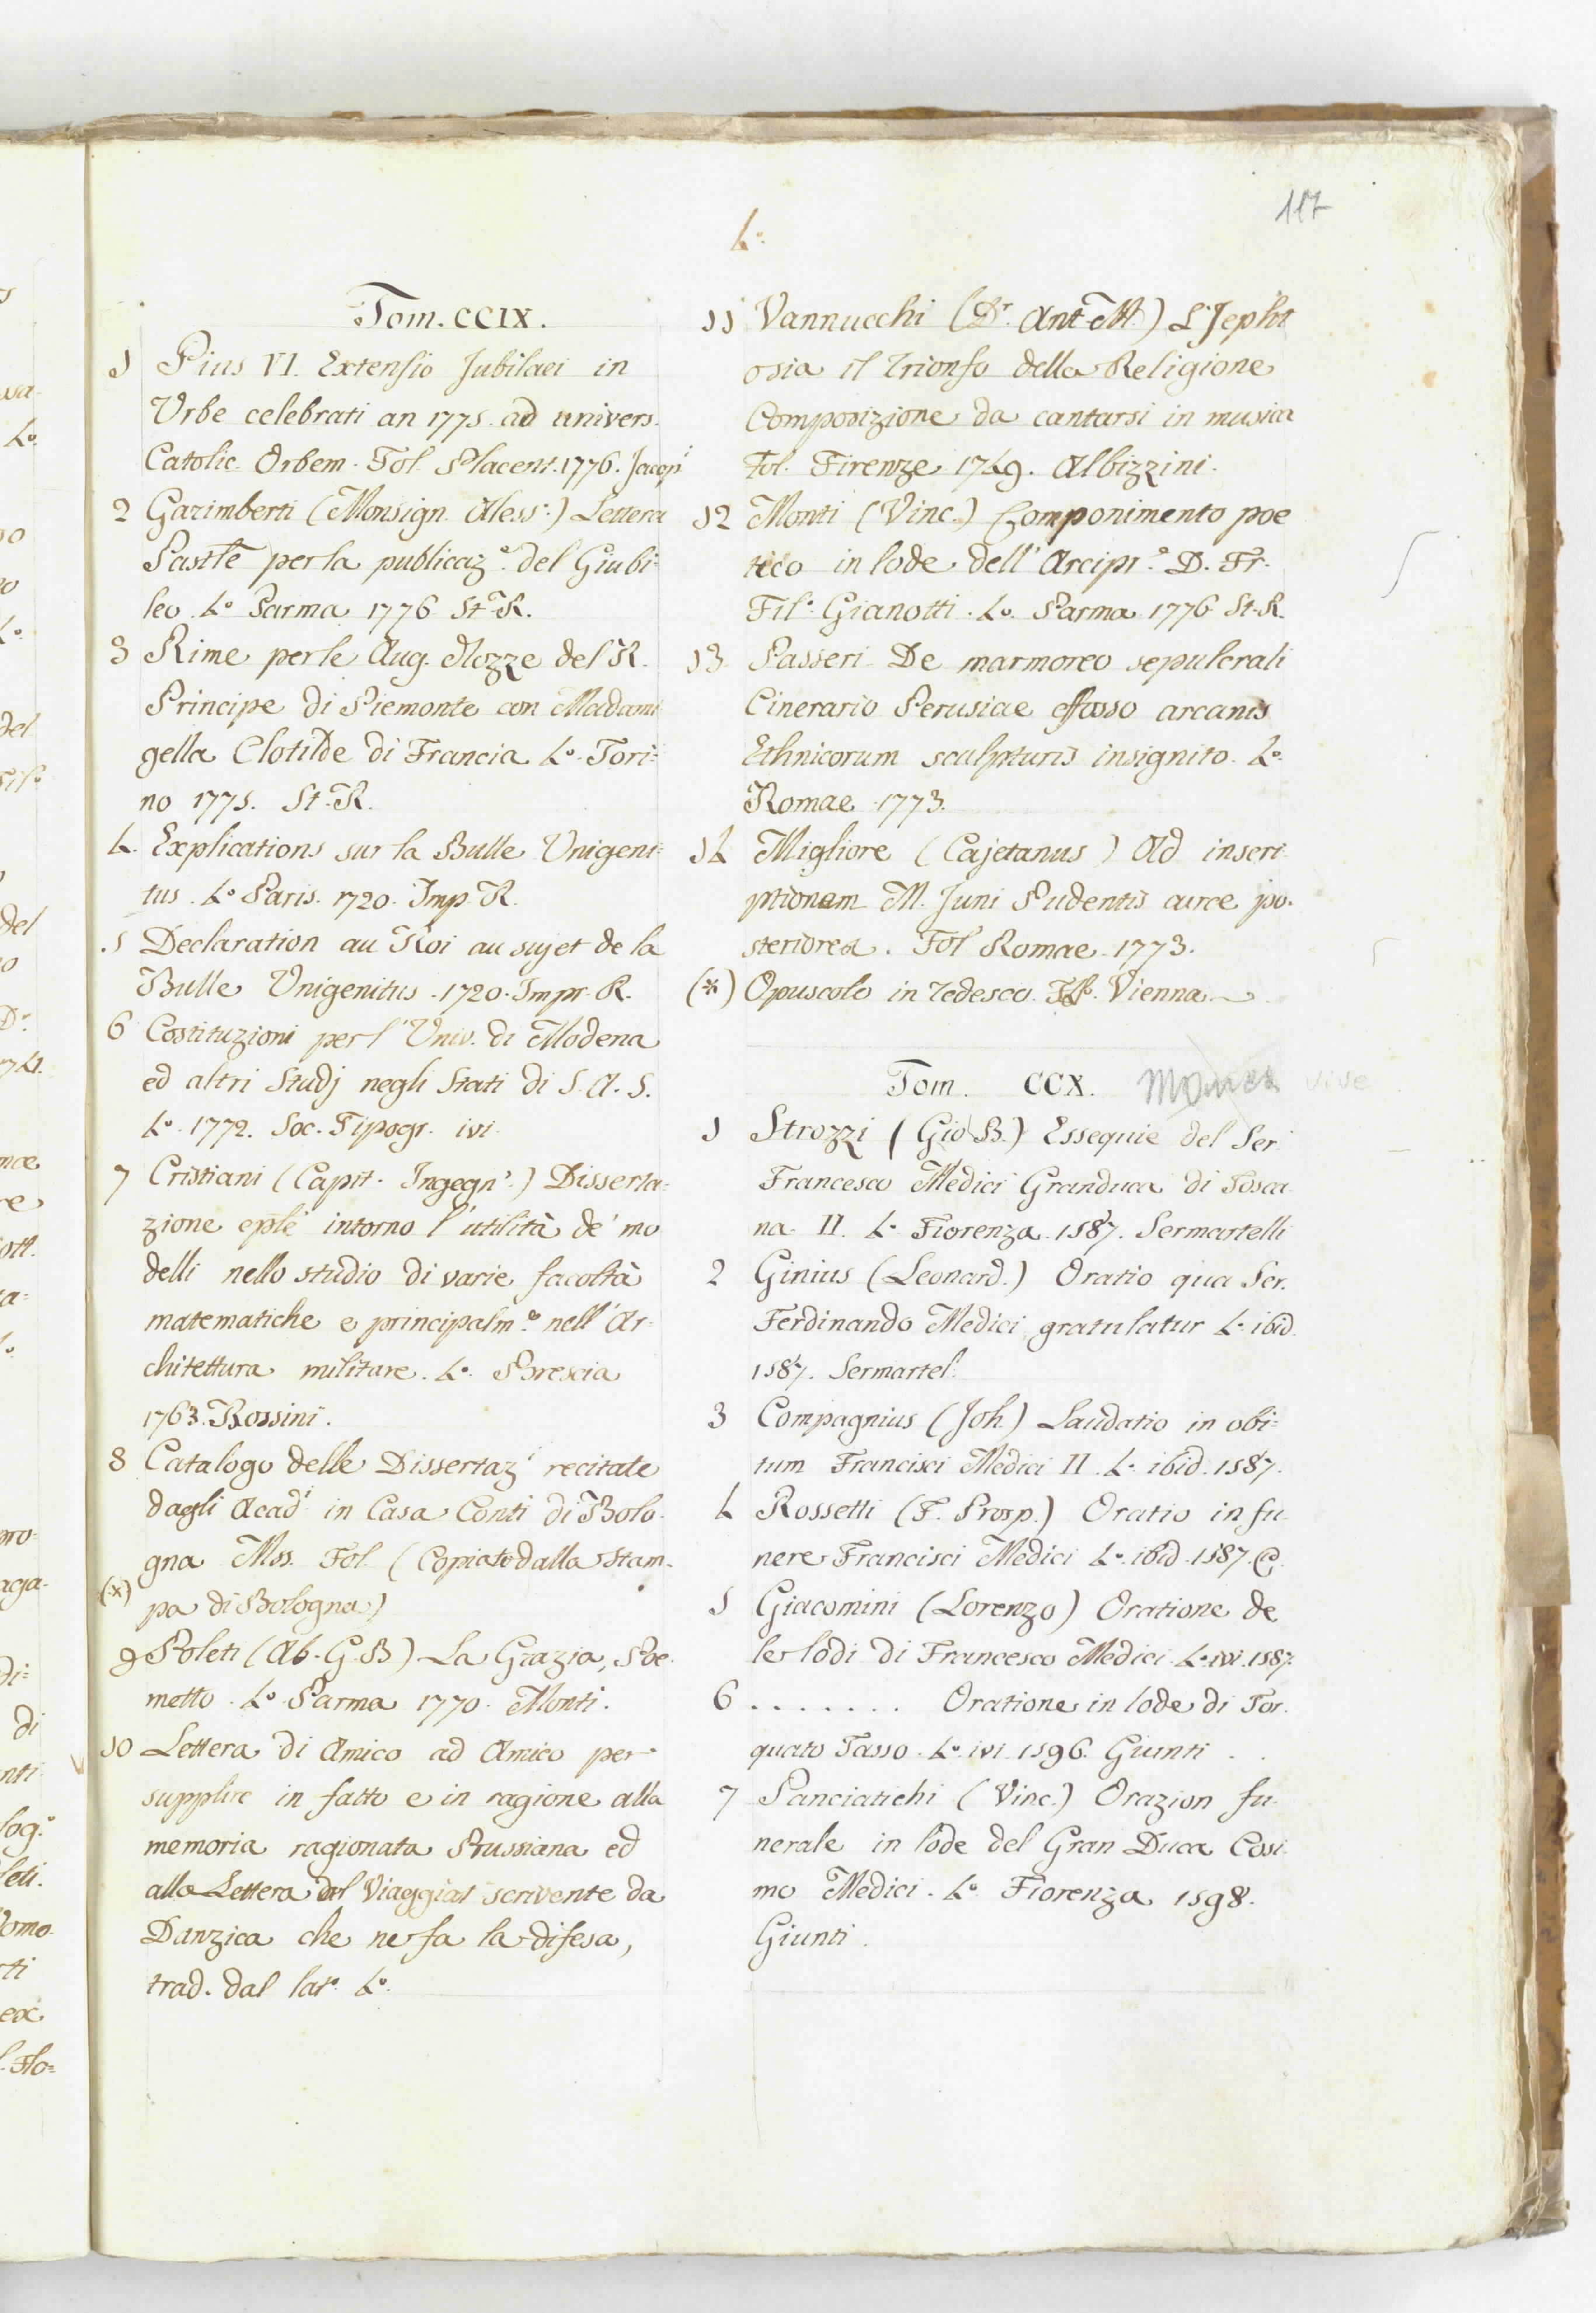 117
4.º
Tom. CCIX.
1 Pius VI. Extensio Jubilaei in
Urbe celebrati an 1775. ad univers.
Catolic. Orbem. Fol. Placent. 1776. Jacopi
2 Garimberti (Monsign. Aless.º) Lettera
Pastle per la publicaz.e del Giubi=
leo. 4.º Parma 1776 St. R.
3 Rime per le Aug. Nozze del R.
Principe di Piemonte con Madami
gella Clotilde di Francia 4.º Tori=
no 1775. St. R.
4 Explications sur la Bulle Unigeni=
tus. 4.º Paris. 1720. Imp. R.
5 Declaration au Roi au sujet de la
Bulle Unigenitus. 1720. Impr. R.
6 Costituzioni per l'Univ. di Modena
ed altri Studj negli Stati di S. A. S.
4.º 1772. Soc. Tipogr. ivi
7 Cristiani (Capit. Ingegn.e) Disserta=
zione eple intorno l'utilità de' mo
delli nello studio di varie facoltà
matematiche e principalm.e nell'Ar=
chitettura militare. 4.º Brescia
1763. Bossini.
8 Catalogo delle Dissertaz.i recitate
dagli Acad.i in Casa Conti di Bolo-
gna Mss. Fol. (Copiato dalla Stam-
(*) pa di Bologna)
9 Poleti (Ab. G. B) La Grazia, Poe
metto. 4.º Parma 1770. Monti.
10 Lettera di Amico ad Amico per
supplire in fatto e in ragione alla
memoria ragionata Prussiana ed
alla Lettera del Viaggiat scrivente da
Danzica che ne fa la difesa,
trad. dal lat.º 4.º
11 Vannucchi (Dr. Ant. M.) L'Jepht
osia il Trionfo della Religione
Composizione da cantarsi in musica
Fol. Firenze 1749. Albizzini.
12 Monti (Vinc.) Componimento poe
tico in lode dell'Arcipr.e D. Fr.
Fil.º Gianotti. 4.º Parma 1776 St. R.
13 Passeri De marmoreo sepulcrali
Cinerario Perusiae effosso arcanis
Ethnicorum sculpturis insignito. 4.º
Romae 1773.
14 Migliore (Cajetanus) Ad inscri
ptionem M. Juni Pudentis curce po.
steriorea. Fol Romae 1773.
(*) Opuscolo in Tedesco. Vienna
Tom. CCX.
1 Strozzi (Gio. B.) Essequie del Ser.
Francesco Medici Granduca di Tosca
na II. 4.º Fiorenza. 1587. Sermartelli
2 Ginius (Leonard.) Oratio qua Ser.
Ferdinando Medici gratulatur 4.º ibid.
1587. Sermartel.
3 Compagnius (Joh.) Laudatio in obi=
tum Francisci Medici II. 4.º ibid. 1587.
4 Rossetti (F. Prosp.) Oratio in fu
nere Francisci Medici 4.º ibid. 1587.
5 Giacomini (Lorenzo) Oratione de
le lodi di Francesco Medici 4.º ivi. 1587.
6 . . . . . . . Oratione in lode di Tor.
quato Tasso. 4.º ivi. 1596. Giunti
7 Panciatichi (Vinc.) Orazion fu
nerale in lode del Gran Duca Cosi
mo Medici. 4.º Fiorenza 1598.
Giunti.